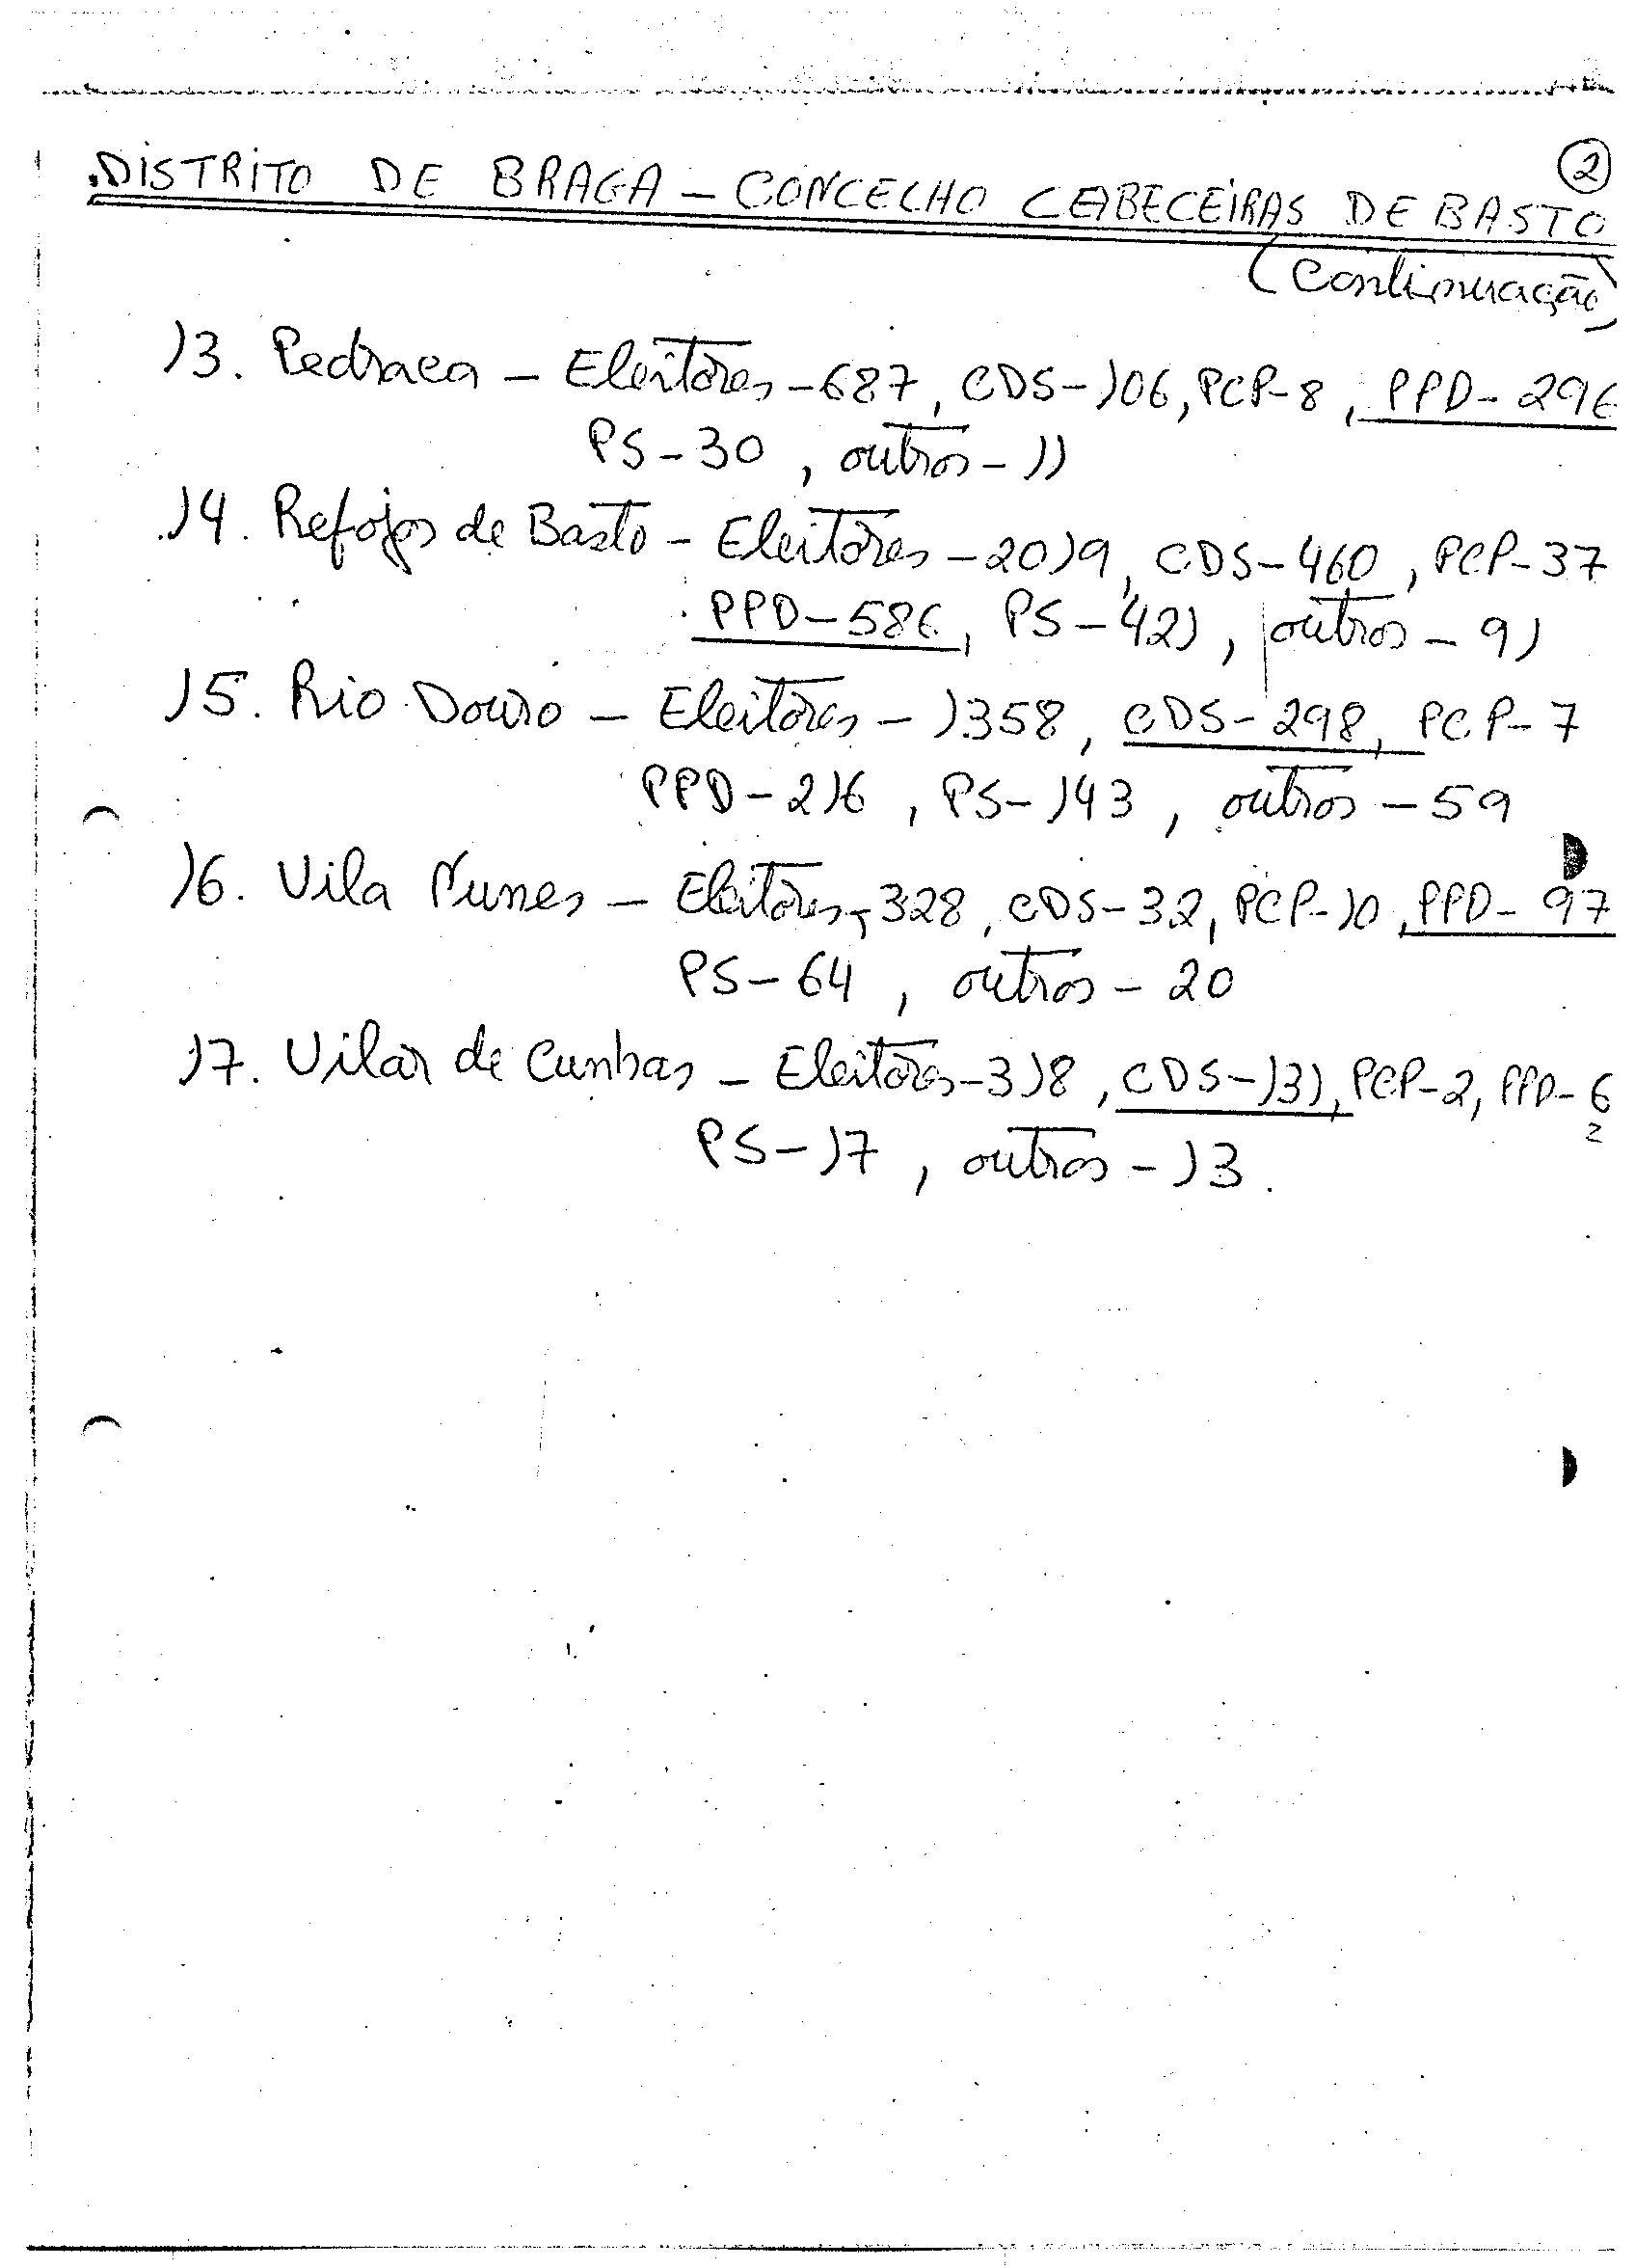 2
DISTRITO DE BRAGA - CONCELHO CABECEIRAS DE BASTO
(continuação)
13. Pedraca - Eleitores - 687, CDS - 106, PCP - 8, PPD - 296
PS - 30, outros - 11
14. Refojos de Basto - Eleitores - 2019, CDS - 460, PCP - 37
PPD - 586, PS - 421, outros - 91
15. Rio Douro - Eleitores - 1358, CDS - 298, PCP - 7
PPD - 216, PS - 143, outros - 59
16. Vila Nunes - Eleitores - 328, CDS - 32, PCP - 10, PPD - 97
PS - 64, outros - 20
17. Vilar de Cunhas - Eleitores - 318, CDS - 131, PCP - 2, PPD - 6
2
PS - 17, outros - 13.